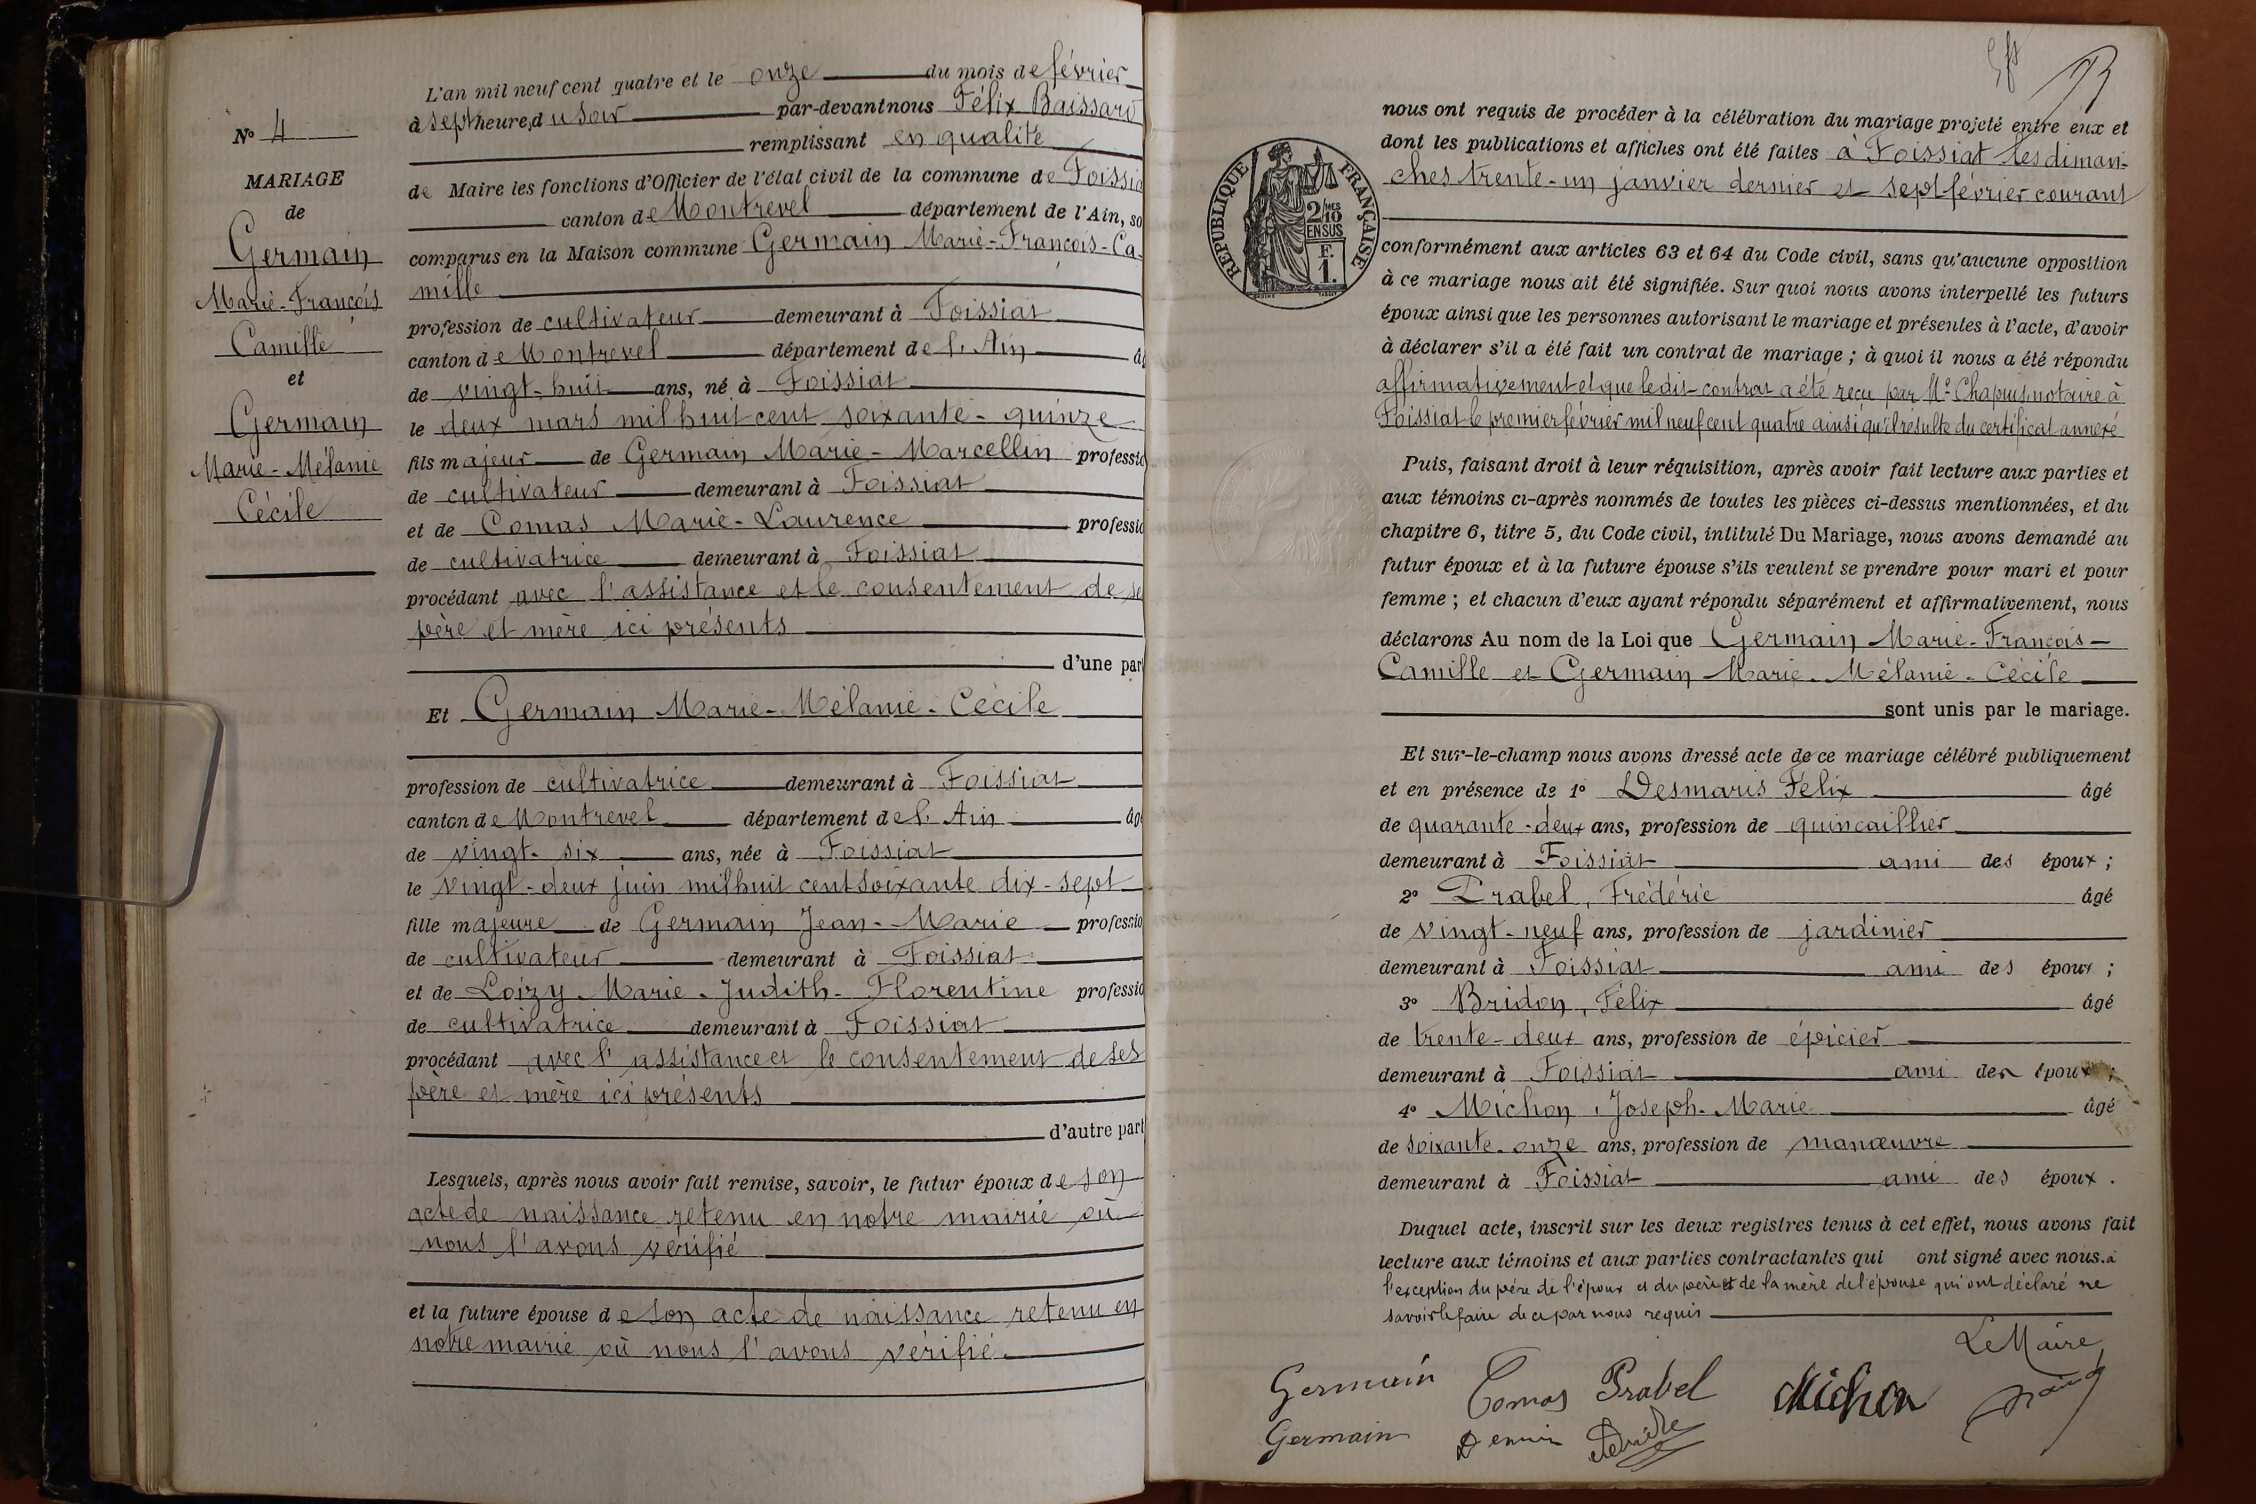 L'an mil neuf cent quatre et le onze du mois de février
à sept heures du soir par-devant nous Félix Baissard
remplissant en qualité
de Maire les fonctions d'Officier de l'état civil de la commune de Foissia
canton de Montrevel département de l'Ain, so
comparus en la Maison commune Germain Marie-François-Ca-
mille
profession de cultivateur demeurant à Foissiat
canton de Montrevel département de l'Ain â
de vingt-huit ans, né à Foissiat
le deux mars mil huit cent soixante-quinze
fils majeur de Germain Marie-Marcellin professio
de cultivateur demeurant à Foissiat
et de Comas Marie-Laurence professio
de cultivatrice demeurant à Foissiat
procédant avec l'assistance et le consentement de se
père et mère ici présents
d'une par
Et Germain Marie-Mélanie-Cécile
profession de cultivatrice demeurant à Foissiat
canton de Montrevel département de l'Ain âg
de vingt-six ans, née à Foissiat
le vingt-deux juin mil huit cent soixante dix-sept
fille majeure de Germain Jean-Marie professio
de cultivateur demeurant à Foissiat
et de Loizy Marie-Judith-Florentine professio
de cultivatrice demeurant à Foissiat
procédant avec l'assistance et le consentement de ses
père et mère ici présents
d'autre part
Lesquels, après nous avoir fait remise, savoir, le futur époux de son
acte de naissance retenu en notre mairie où
nous l'avons vérifié
et la future épouse de son acte de naissance retenu en
notre mairie où nous l'avons vérifié.
N° 4
MARIAGE
de
Germain
Marie-François
Camille
et
Germain
Marie-Mélanie
Cécile
nous ont requis de procéder à la célébration du mariage projeté entre eux et
dont les publications et affiches ont été faites à Foissiat les diman-
ches trente-un janvier dernier et sept février courant
RÉPUBLIQUE FRANÇAISE
2/10 MES
EN SUS
F.
1.
conformément aux articles 63 et 64 du Code civil, sans qu'aucune opposition
à ce mariage nous ait été signifiée. Sur quoi nous avons interpellé les futurs
époux ainsi que les personnes autorisant le mariage et présentes à l'acte, d'avoir
à déclarer s'il a été fait un contrat de mariage ; à quoi il nous a été répondu
affirmativement et que le dit contrat a été reçu par Me Chapuis notaire à
Foissiat le premier février mil neuf cent quatre ainsi qu'il résulte du certificat annexé
Puis, faisant droit à leur réquisition, après avoir fait lecture aux parties et
aux témoins ci-après nommés de toutes les pièces ci-dessus mentionnées, et du
chapitre 6, titre 5, du Code civil, intitulé Du Mariage, nous avons demandé au
futur époux et à la future épouse s'ils veulent se prendre pour mari et pour
femme ; et chacun d'eux ayant répondu séparément et affirmativement, nous
déclarons Au nom de la Loi que Germain Marie-François-
Camille et Germain Marie-Mélanie-Cécile
sont unis par le mariage.
Et sur-le-champ nous avons dressé acte de ce mariage célébré publiquement
et en présence de 1° Desmaris Félix âgé
de quarante-deux ans, profession de quincaillier
demeurant à Foissiat ami des époux ;
2° Prabel, Frédéric âgé
de vingt-neuf ans, profession de jardinier
demeurant à Foissiat ami des époux ;
3° Bridon, Félix âgé
de trente-deux ans, profession de épicier
demeurant à Foissiat ami des époux ;
4° Michon, Joseph-Marie âgé
de soixante-onze ans, profession de manœuvre
demeurant à Foissiat ami des époux.
Duquel acte, inscrit sur les deux registres tenus à cet effet, nous avons fait
lecture aux témoins et aux parties contractantes qui ont signé avec nous. à
l'exception du père de l'époux et du père et de la mère de l'épouse qui ont déclaré ne
savoir le faire de ce par nous requis
Le Maire
Germain Comas Prabel Michon
Germain